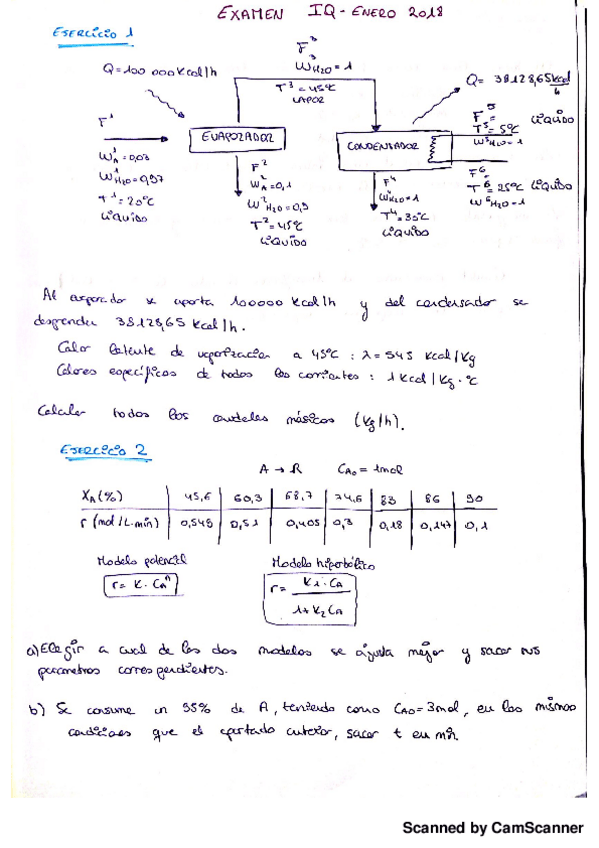 EXAMEN IQ - ENERO 2018
EJERCICIO 1
Q= 100 000 Kcal/h
F³
W³H2O = 1
T³ = 45ºC
VAPOR
Q= 38128,65 kcal/h
F¹
W¹A = 0,03
W¹H2O = 0,97
T¹ = 20ºC
LÍQUIDO
EVAPORADOR
F²
W²A = 0,1
W²H2O = 0,9
T² = 45ºC
LÍQUIDO
CONDENSADOR
F⁵ =
T⁵ = 5ºC
LÍQUIDO
W⁵H2O = 1
F⁴
W⁴H2O = 1
T⁴ = 35ºC
LÍQUIDO
F⁶
T⁶ = 25ºC LÍQUIDO
W⁶H2O = 1
Al evaporador se aporta 100000 Kcal/h y del condensador se
desprenden 38128,65 Kcal/h.
Calor latente de vaporización a 45ºC : λ = 545 Kcal/Kg
Calores específicos de todos las corrientes : 1 Kcal/Kg·ºC
Calcular todos los caudales másicos (Kg/h).
EJERCICIO 2
A → R CA0 = 1mol
XA (%) 45,6 60,3 68,7 74,6 83 86 90
r (mol/L·min) 0,549 0,51 0,405 0,3 0,18 0,147 0,1
Modelo potencial Modelo hiperbólico
r = K · CAⁿ
r = K1 · CA
1 + K2 CA
a) Elegir a cual de los dos modelos se ajusta mejor y sacar sus
parámetros correspondientes.
b) Se consume un 95% de A, teniendo como CA0 = 3mol, en las mismas
condiciones que el apartado anterior, sacar t en min.
Scanned by CamScanner